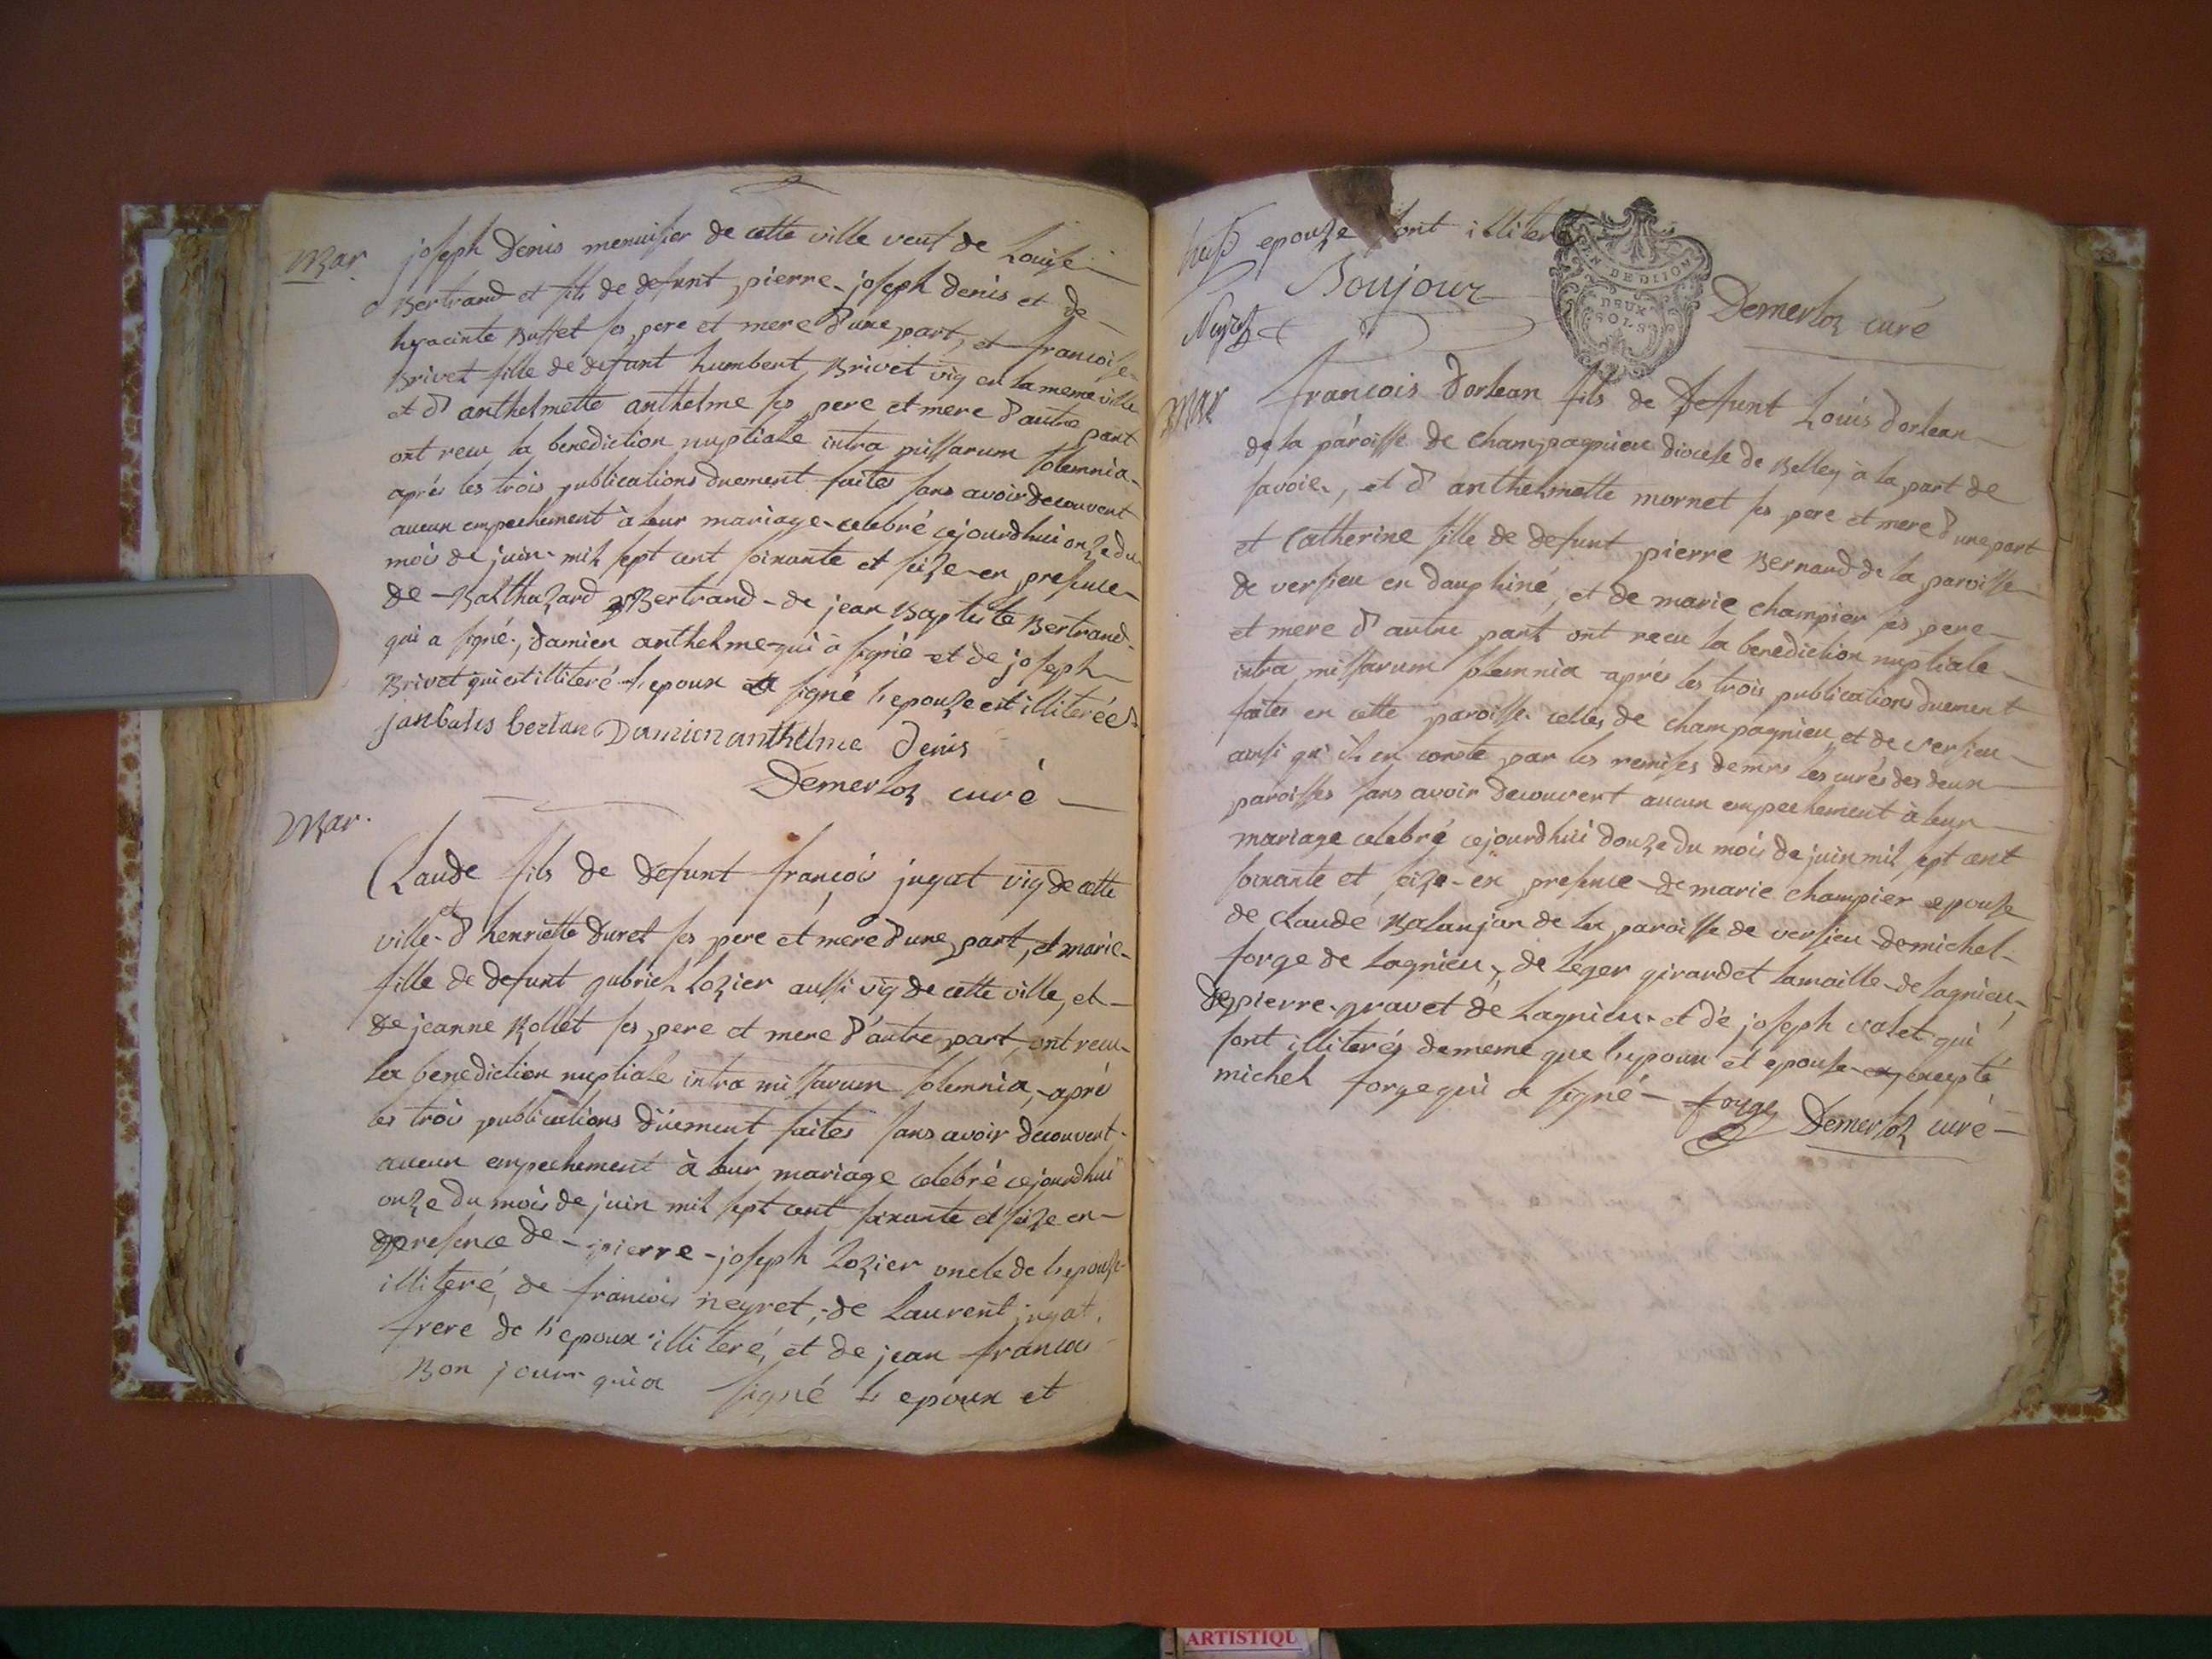 Mar.
joseph Denis menuisier de cette ville veuf de Louise
Bertrand et fils de defunt pierre joseph denis et de
hyacinte Buffet ses pere et mere d'une part, et francoise
Brivet fille de defunt humbert Brivet vig en la meme ville
et d' anthelmette anthelme ses pere et mere d'autre part
ont recu la benediction nuptiale intra missarum solemnia
aprés les trois publications duement faites sans avoir decouvert
aucun empechement à leur mariage celebré cejourdhui onze du
mois de juin mil sept cent soixante et seize en presence
de Balthazard Bertrand de jean Baptiste Bertrand
qui a signé, damien anthelme qui a signé et de joseph
Brivet qui est illiteré l'epoux a signé l'epouze est illiterée
janbatis bertan Damien anthelme Denis
Demerloz curé
Mar.
Claude fils de defunt francois jugat vig de cette
ville et d' henriette duret ses pere et mere d'une part, et marie
fille de defunt gabriel lozier aussi vig de cette ville, et
de jeanne Rollet ses pere et mere d'autre part, ont recu
la benediction nuptiale intra missarum solemnia, apré
les trois publications düement faites sans avoir decouvert
aucun empechement à leur mariage celebré cejourdhui
onze du mois de juin mil sept cent soixante et seize en
presence de pierre joseph lozier oncle de l'epouse
illiteré, de francois neyret, de Laurent jugat
frere de l'epoux illiteré, et de jean francois
Bon jour qui a signé l'epoux et
epouze sont illiteré
Boujour
Demerloz curé
Neyret
G EN DE DIJON
DEUX
SOLS
Mar
francois dorlean fils de defunt Louis dorlean
de la paroisse de champagnieu diocese de Belley à la part de
savoie, et d' anthelmette mornet ses pere et mere d'une part
et Catherine fille de defunt pierre Bernard de la paroisse
de versieu en dauphiné, et de marie champier ses pere
et mere d' autre part ont recu la benediction nuptiale
intra missarum solemnia aprés les trois publications duement
faites en cette paroisse celles de champagnieu et de versieu
ausi qu'il en conste par les remises de mrs les curés des deux
paroisses sans avoir decouvert aucun empechement à leur
mariage celebré cejourdhui douze du mois de juin mil sept cent
soixante et seize en presence de marie champier epouse
de claude Balanjar de la paroisse de versieu de michel
forge de lagnieu, de leger girardet lamaille de lagnieu,
de pierre gravet de Lagnieu et de joseph valet qui
sont illiterés de meme que l'epoux et epouse excepté
michel forge qui a signé forge Demerloz curé
ARTISTIQU